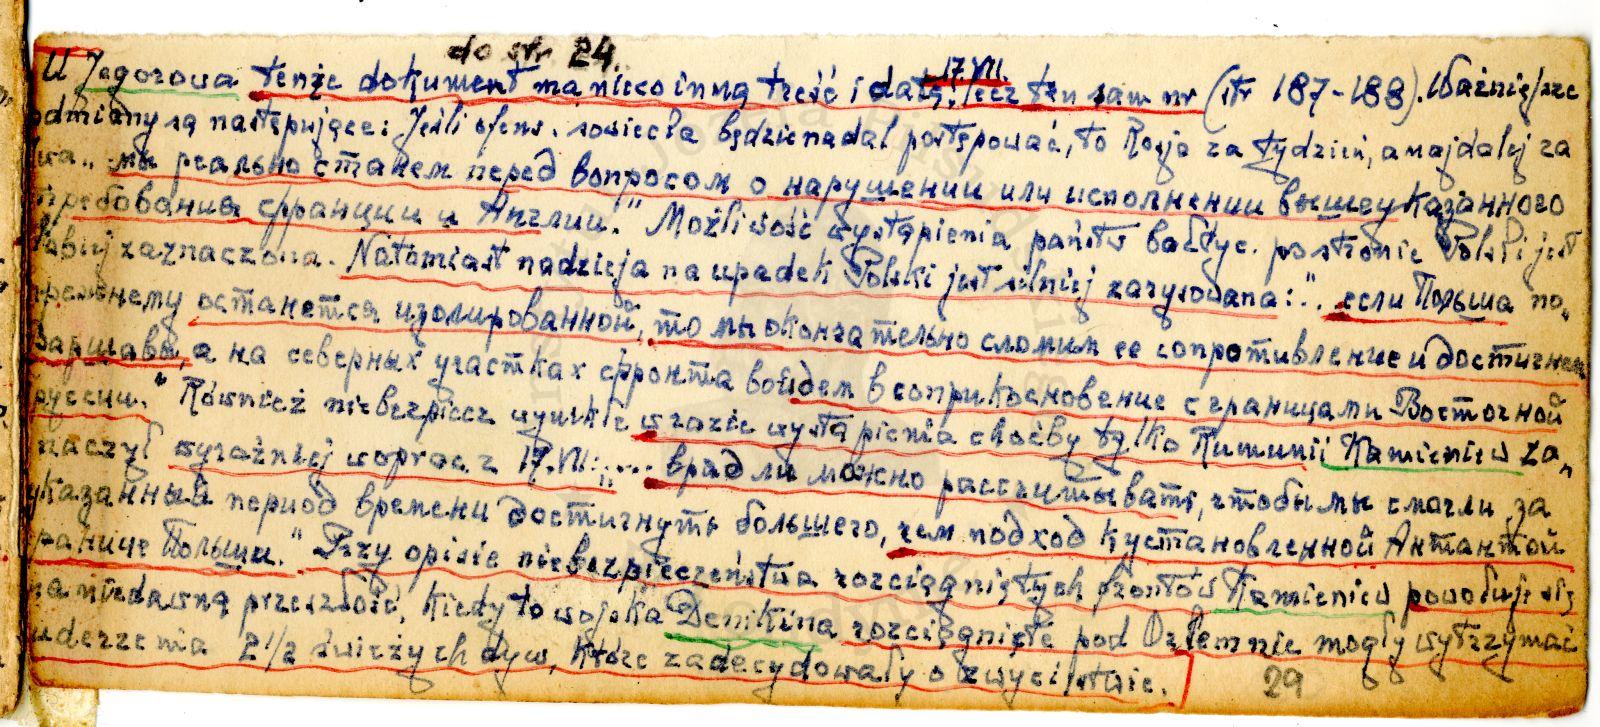 do str 24.
17.VII.
U Jegorowa tenże dokument ma nieco inną treść i datę, lecz ten sam nr (str 187-188). Ważniejsze
odmiany są następujące: Jeśli ofens. sowiecka będzie nadal postępować, to Rosja za tydzień, a najdalej za
dwa „мы реально станем перед вопросом о нарушении или исполнении вышеуказанного
требования Франции и Англии." Możliwość wystąpienia państw bałtyc. po stronie Polski jest
słabiej zaznaczona. Natomiast nadzieja na upadek Polski jest silniej zarysowana: „если Польша по-
прежнему останется изолированной, то мы окончательно сломим ее сопротивление и достигнем
Варшавы, а на северных участках фронта войдем в соприкосновение с границами Восточной
Пруссии." Również niebezpiecz wynikłe w razie wystąpienia choćby tylko Rumunii Kamieniew za-
znaczył wyraźniej w oprac z 17.VII: „... врад ли можно рассчитывать, чтобы мы смогли за
указанный период времени достигнуть большего, чем подход к установленной Антантой
границе Польши." Przy opisie niebezpieczeństwa rozciągniętych frontów Kamieniew powołuje się
na niedawną przeszłość, kiedy to wojska Denikina rozciągnięte pod Orłem nie mogły wytrzymać
uderzenia 2 1/2 świeżych dyw, które zadecydowały o zwycięstwie.
29